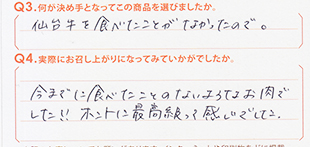 Q3.何が決め手となってこの商品を選びましたか。
仙台牛を食べたことがなかったので。
Q4.実際にお召し上がりになってみていかがでしたか。
今までに食べたことのないようなお肉で
した!! ホントに最高級って感じでした。